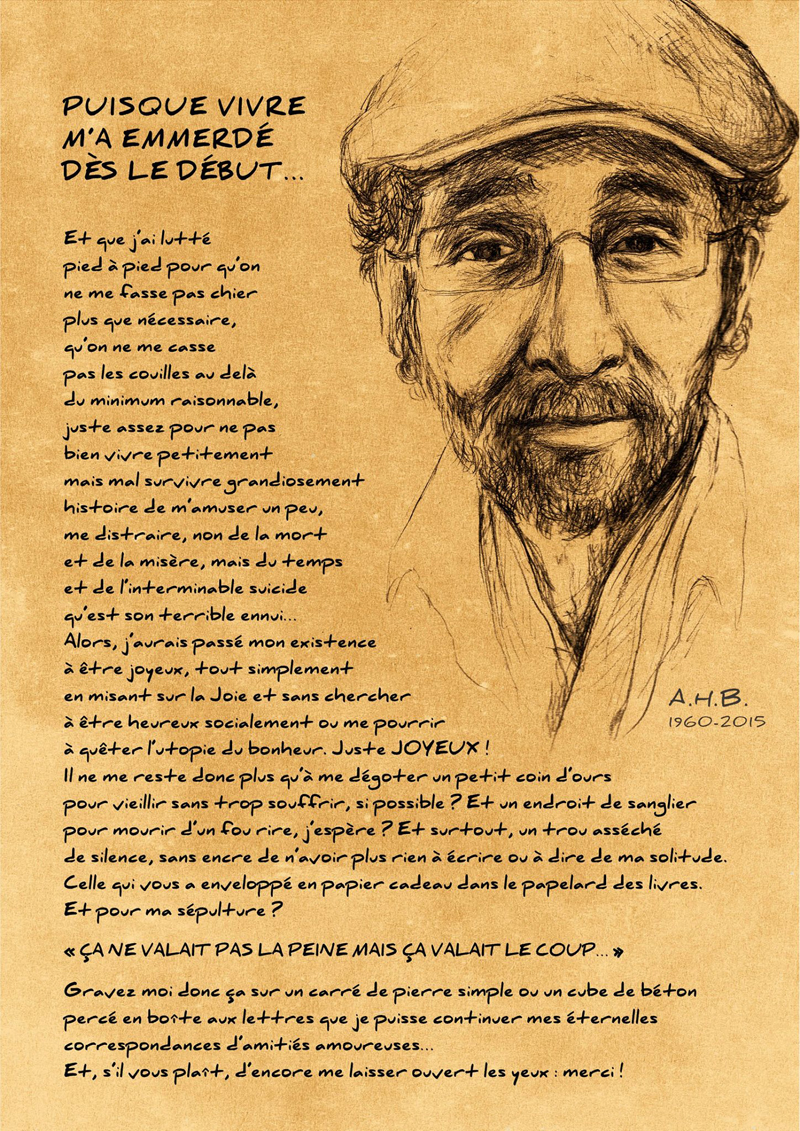 PUISQUE VIVRE
M'A EMMERDÉ
DÈS LE DÉBUT...
Et que j'ai lutté
pied à pied pour qu'on
ne me fasse pas chier
plus que nécessaire,
qu'on ne me casse
pas les couilles au delà
du minimum raisonnable,
juste assez pour ne pas
bien vivre petitement
mais mal survivre grandiosement
histoire de m'amuser un peu,
me distraire, non de la mort
et de la misère, mais du temps
et de l'interminable suicide
qu'est son terrible ennui...
Alors, j'aurais passé mon existence
à être joyeux, tout simplement
en misant sur la Joie et sans chercher
à être heureux socialement ou me pourrir
à quêter l'utopie du bonheur. Juste JOYEUX !
Il ne me reste donc plus qu'à me dégoter un petit coin d'ours
pour vieillir sans trop souffrir, si possible ? Et un endroit de sanglier
pour mourir d'un fou rire, j'espère ? Et surtout, un trou asséché
de silence, sans encre de n'avoir plus rien à écrire ou à dire de ma solitude.
Celle qui vous a enveloppé en papier cadeau dans le papelard des livres.
Et pour ma sépulture ?
« ÇA NE VALAIT PAS LA PEINE MAIS ÇA VALAIT LE COUP... »
Gravez moi donc ça sur un carré de pierre simple ou un cube de béton
percé en boîte aux lettres que je puisse continuer mes éternelles
correspondances d'amitiés amoureuses...
Et, s'il vous plaît, d'encore me laisser ouvert les yeux : merci !
A.H.B.
1960-2015